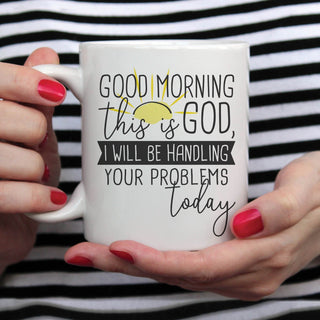 GOOD MORNING
this is GOD,
I WILL BE HANDLING
YOUR PROBLEMS
today